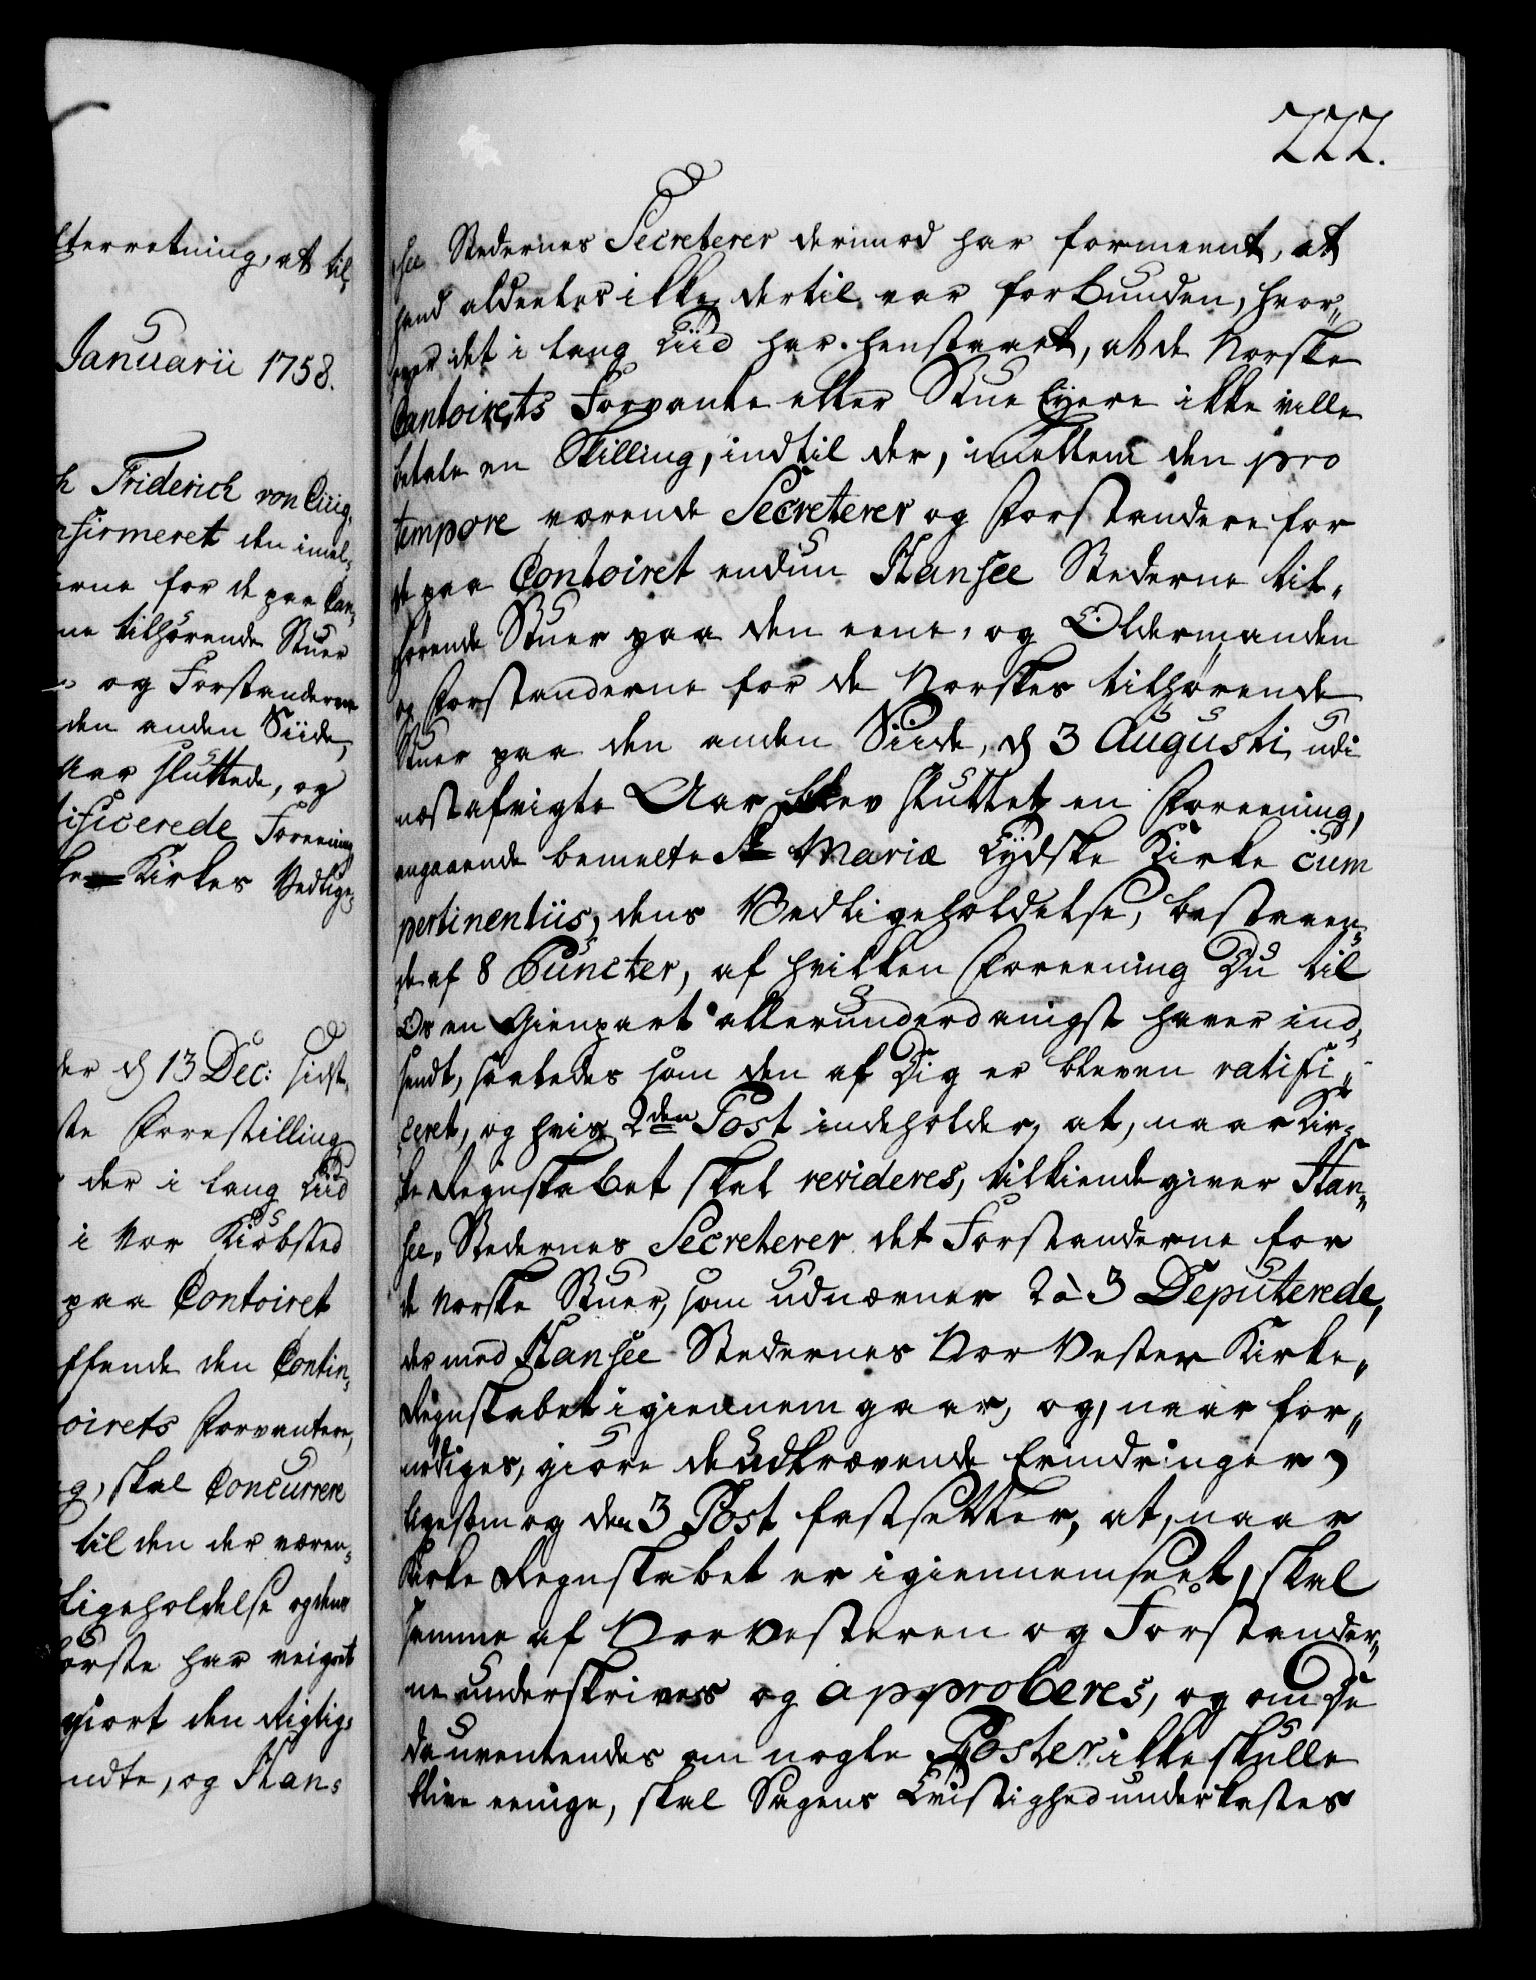 fterretning, at til¬
Januarii 1758.
Friderich von Cicig¬
nfirmeret den imel¬
erne for de paa Con¬
ne tilhørende Stuer
og Forstanderne
den anden Siide,
Aar sluttede, og
tificerede Foreening
Kirkes Vedlige¬
der d 13 Dec: sidst¬
ste Forestilling
der i lang Tiid
i Vor Kiøbsted
paa Contoiret
ffende den Contin¬
oirets Forvantere,
g, skal Concurrere
til den der væren¬
ligeholdelse og dens
første har veigret
giort den Rigtig¬
ndte, og Han¬
222.
see Stædernes Secreterer derimod har formeent, at
hand aldeeles ikke dertil var forbunden, hvor¬
over det i lang Tiid har henstaaet, at de Norske
Contoirets Forvante eller Stue Eyere ikke ville
betale en Skilling, indtil der, imellem den pro
tempore værende Secreterer og Forstandere for
de paa Contoiret endnu Hansee Stæderne til¬
hørende Stuer paa den eene, og Oldermanden
og Forstanderne for de Norskes tilhørende
Stuer paa den anden Siide, d 3 Augusti udi
næstafvigte Aar blev sluttet en Foreening,
angaaende bemelte St Mariæ Tydske Kirke cum
pertinentiis, dens Vedligeholdelse, bestaaen¬
de af 8 Puncter, af hvilken Foreening Du til
Os en Gienpart allerunderdanigst haver ind¬
sendt, saaledes som den af Dig er bleven ratifi¬
ceret, og hvis 2den Post indeholder, at, naar Kir¬
ke Regnskabet skal revideres, tilkiendegiver Han¬
see Stædernes Secreterer det Forstanderne for
de Norske Stuer, som udnævner 2 à 3 Deputerede,
der med Hansee Stædernes Vor Vester Kirke¬
Regnskabet igiennemgaar, og, naar for¬
nødiges, giøre de udkrævende Erindringer,
ligesom og den 3 Post fastsetter, at, naar
Kirke Regnskabet er igiennemseet, skal
samme af Vorvesteren og Forstander¬
ne underskrives og approberes, og om De
da uventendes om nogle Poster ikke skulle
blive eenige, skal Sagens Tvistighed underkastes